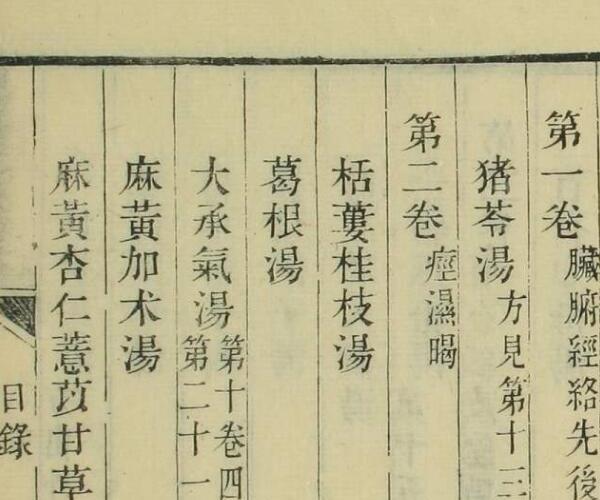 第一卷臟腑經絡先後
猪苓湯方見第十三
第二卷痙濕暍
栝蔞桂枝湯
葛根湯
大承氣湯第十卷四
第二十一
麻黃加术湯
麻黃杏仁薏苡甘草
目錄